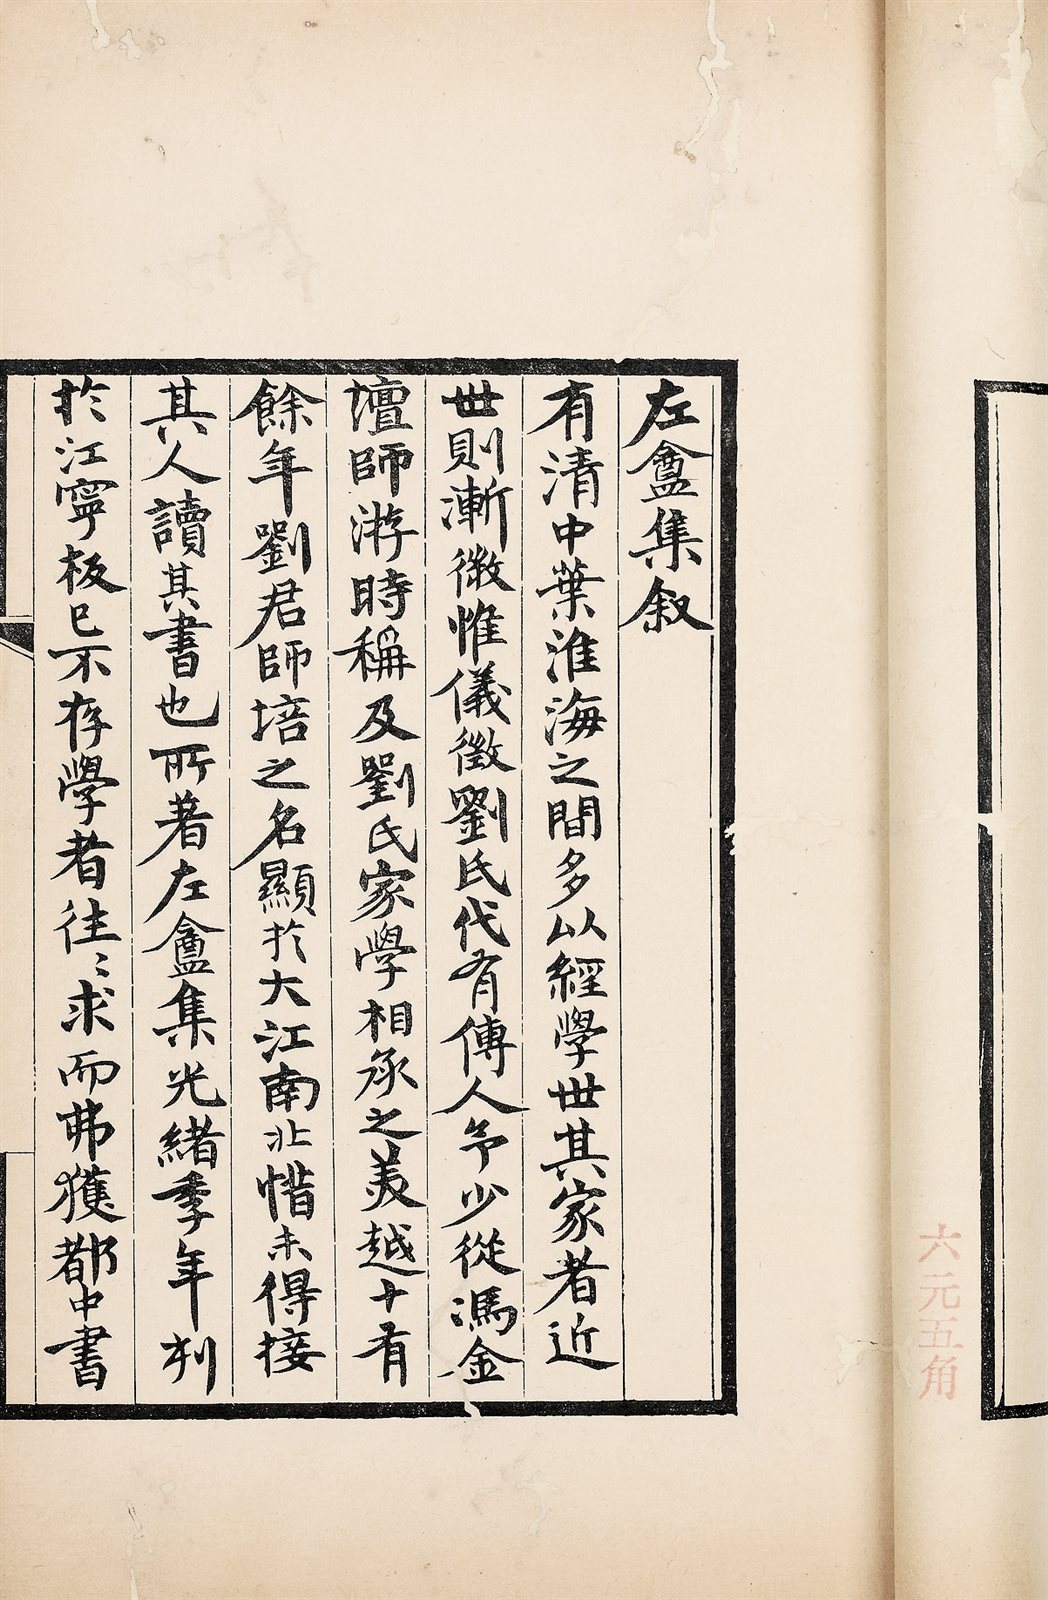 左盦集叙
有清中葉淮海之間多以經學世其家者近
世則漸微惟儀徵劉氏代有傳人予少從馮金
壇師游時稱及劉氏家學相承之美越十有
餘年劉君師培之名顯於大江南北惜未得接
其人讀其書也所著左盦集光緒季年刋
於江寧板已不存學者往〻求而弗獲都中書
六元五角